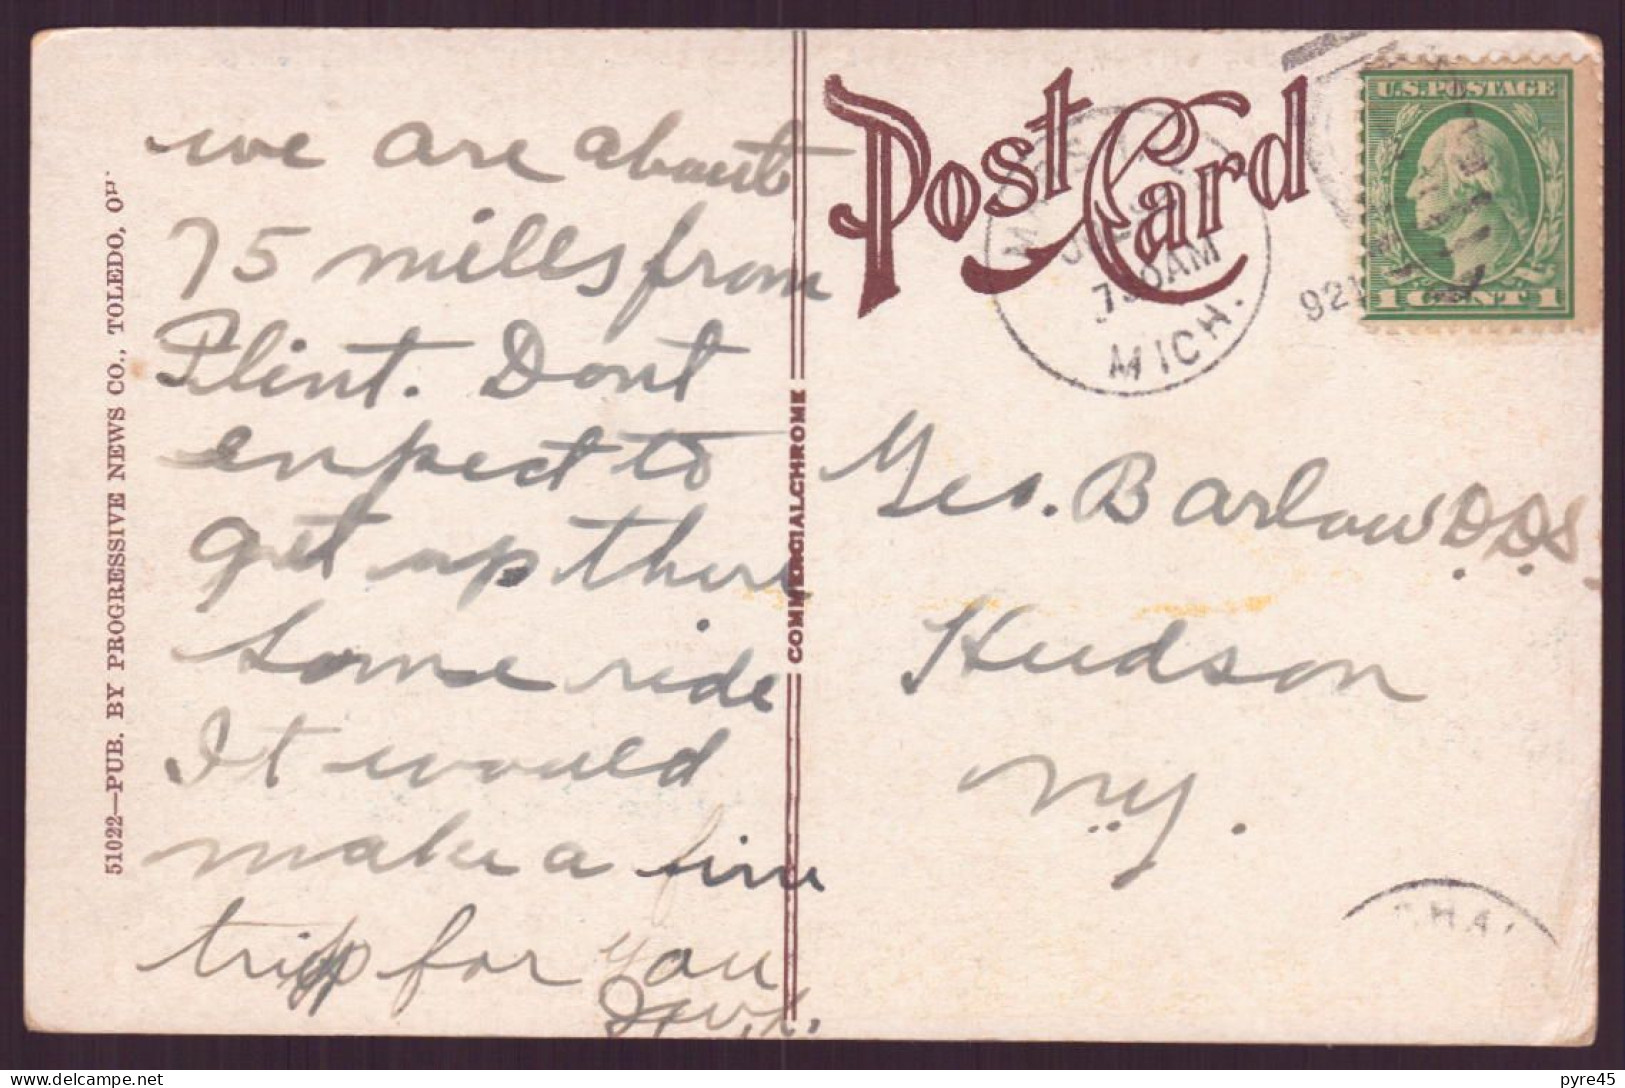 we are about
75 miles from
Flint. Dont
expect to
get up there
Some ride
It would
make a fine
trip for you
51022—PUB. BY PROGRESSIVE NEWS CO., TOLEDO,
COMMERCIALCHROME
Post Card
7 30 AM
MICH.
U.S. POSTAGE
1 CENT 1
Geo. Barlow D.D.S.
Hudson
N.Y.
pyre45